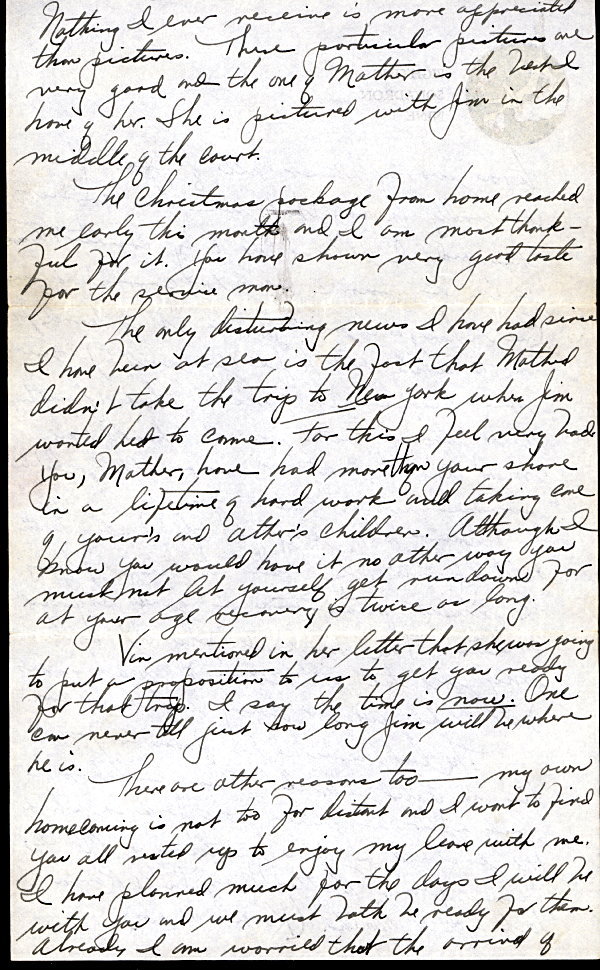 Nothing I ever receive is more appreciated
than pictures. These particular pictures are
very good and the one of Mother is the best I
have of her. She is pictured with Jim in the
middle of the court.
The Christmas package from home reached
me early this month and I am most thank-
ful for it. You have shown very good taste
for the service man.
The only disturbing news I have had since
I have been at sea is the fact that Mother
didn't take the trip to New York when Jim
wanted her to come. For this I feel very bad.
You, Mother, have had more than your share
in a lifetime of hard work and taking care
of your's and other's children. Although I
know you would have it no other way you
must not let yourself get run down for
at your age recovery is twice as long.
Vin mentioned in her letter that she was going
to put a proposition to us to get you ready
for that trip. I say the time is now. One
can never tell just how long Jim will be where
he is.
There are other reasons too — my own
homecoming is not too far distant and I want to find
you all rested up to enjoy my leave with me.
I have planned much for the days I will be
with you and we must both be ready for them.
Already I am worried that the arrival of